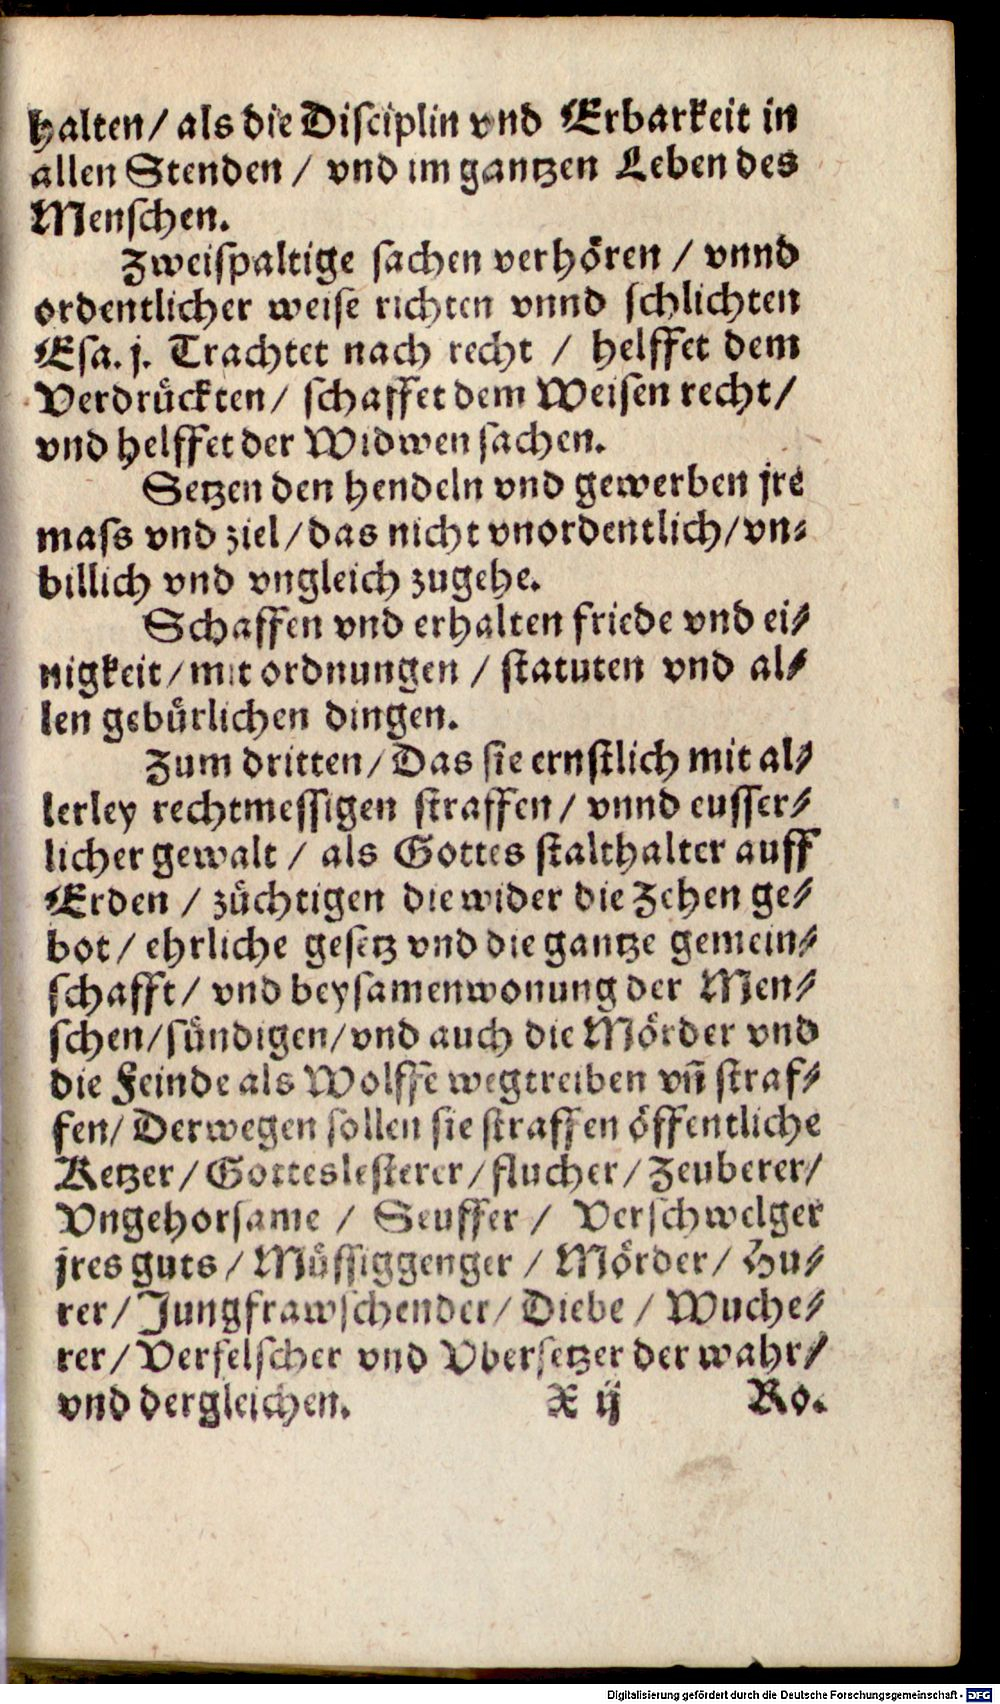 halten/ als die Disciplin vnd Erbarkeit in
allen Stenden / vnd im gantzen Leben des
Menschen.
Zweispaltige sachen verhören / vnnd
ordentlicher weise richten vnnd schlichten
Esa. j. Trachtet nach recht / helffet dem
Verdrückten/ schaffet dem Weisen recht/
vnd helffet der Widwen sachen.
Setzen den hendeln vnd gewerben jre
mass vnd ziel/das nicht vnordentlich/vn⸗
billich vnd vngleich zugehe.
Schaffen vnd erhalten friede vnd ei⸗
nigkeit/mit ordnungen / statuten vnd al⸗
len gebürlichen dingen.
Zum dritten/Das sie ernstlich mit al⸗
lerley rechtmessigen straffen/ vnnd eusser⸗
licher gewalt / als Gottes stalthalter auff
Erden / züchtigen die wider die Zehen ge⸗
bot/ ehrliche gesetz vnd die gantze gemein⸗
schafft/ vnd beysamenwonung der Men⸗
schen/sündigen/vnd auch die Mörder vnd
die Feinde als Wolffe wegtreiben vn̄ straf⸗
fen/ Derwegen sollen sie straffen öffentliche
Ketzer/Gotteslesterer/flucher/Zeuberer/
Vngehorsame / Seuffer / Verschwelger
jres guts/Müssiggenger / Mörder/ Hu⸗
rer/Jungfrawschender/Diebe / Wuche⸗
rer/Verfelscher vnd Vbersetzer der wahr/
vnd dergleichen. X ij Ro.
Digitalisierung gefördert durch die Deutsche Forschungsgemeinschaft - DFG